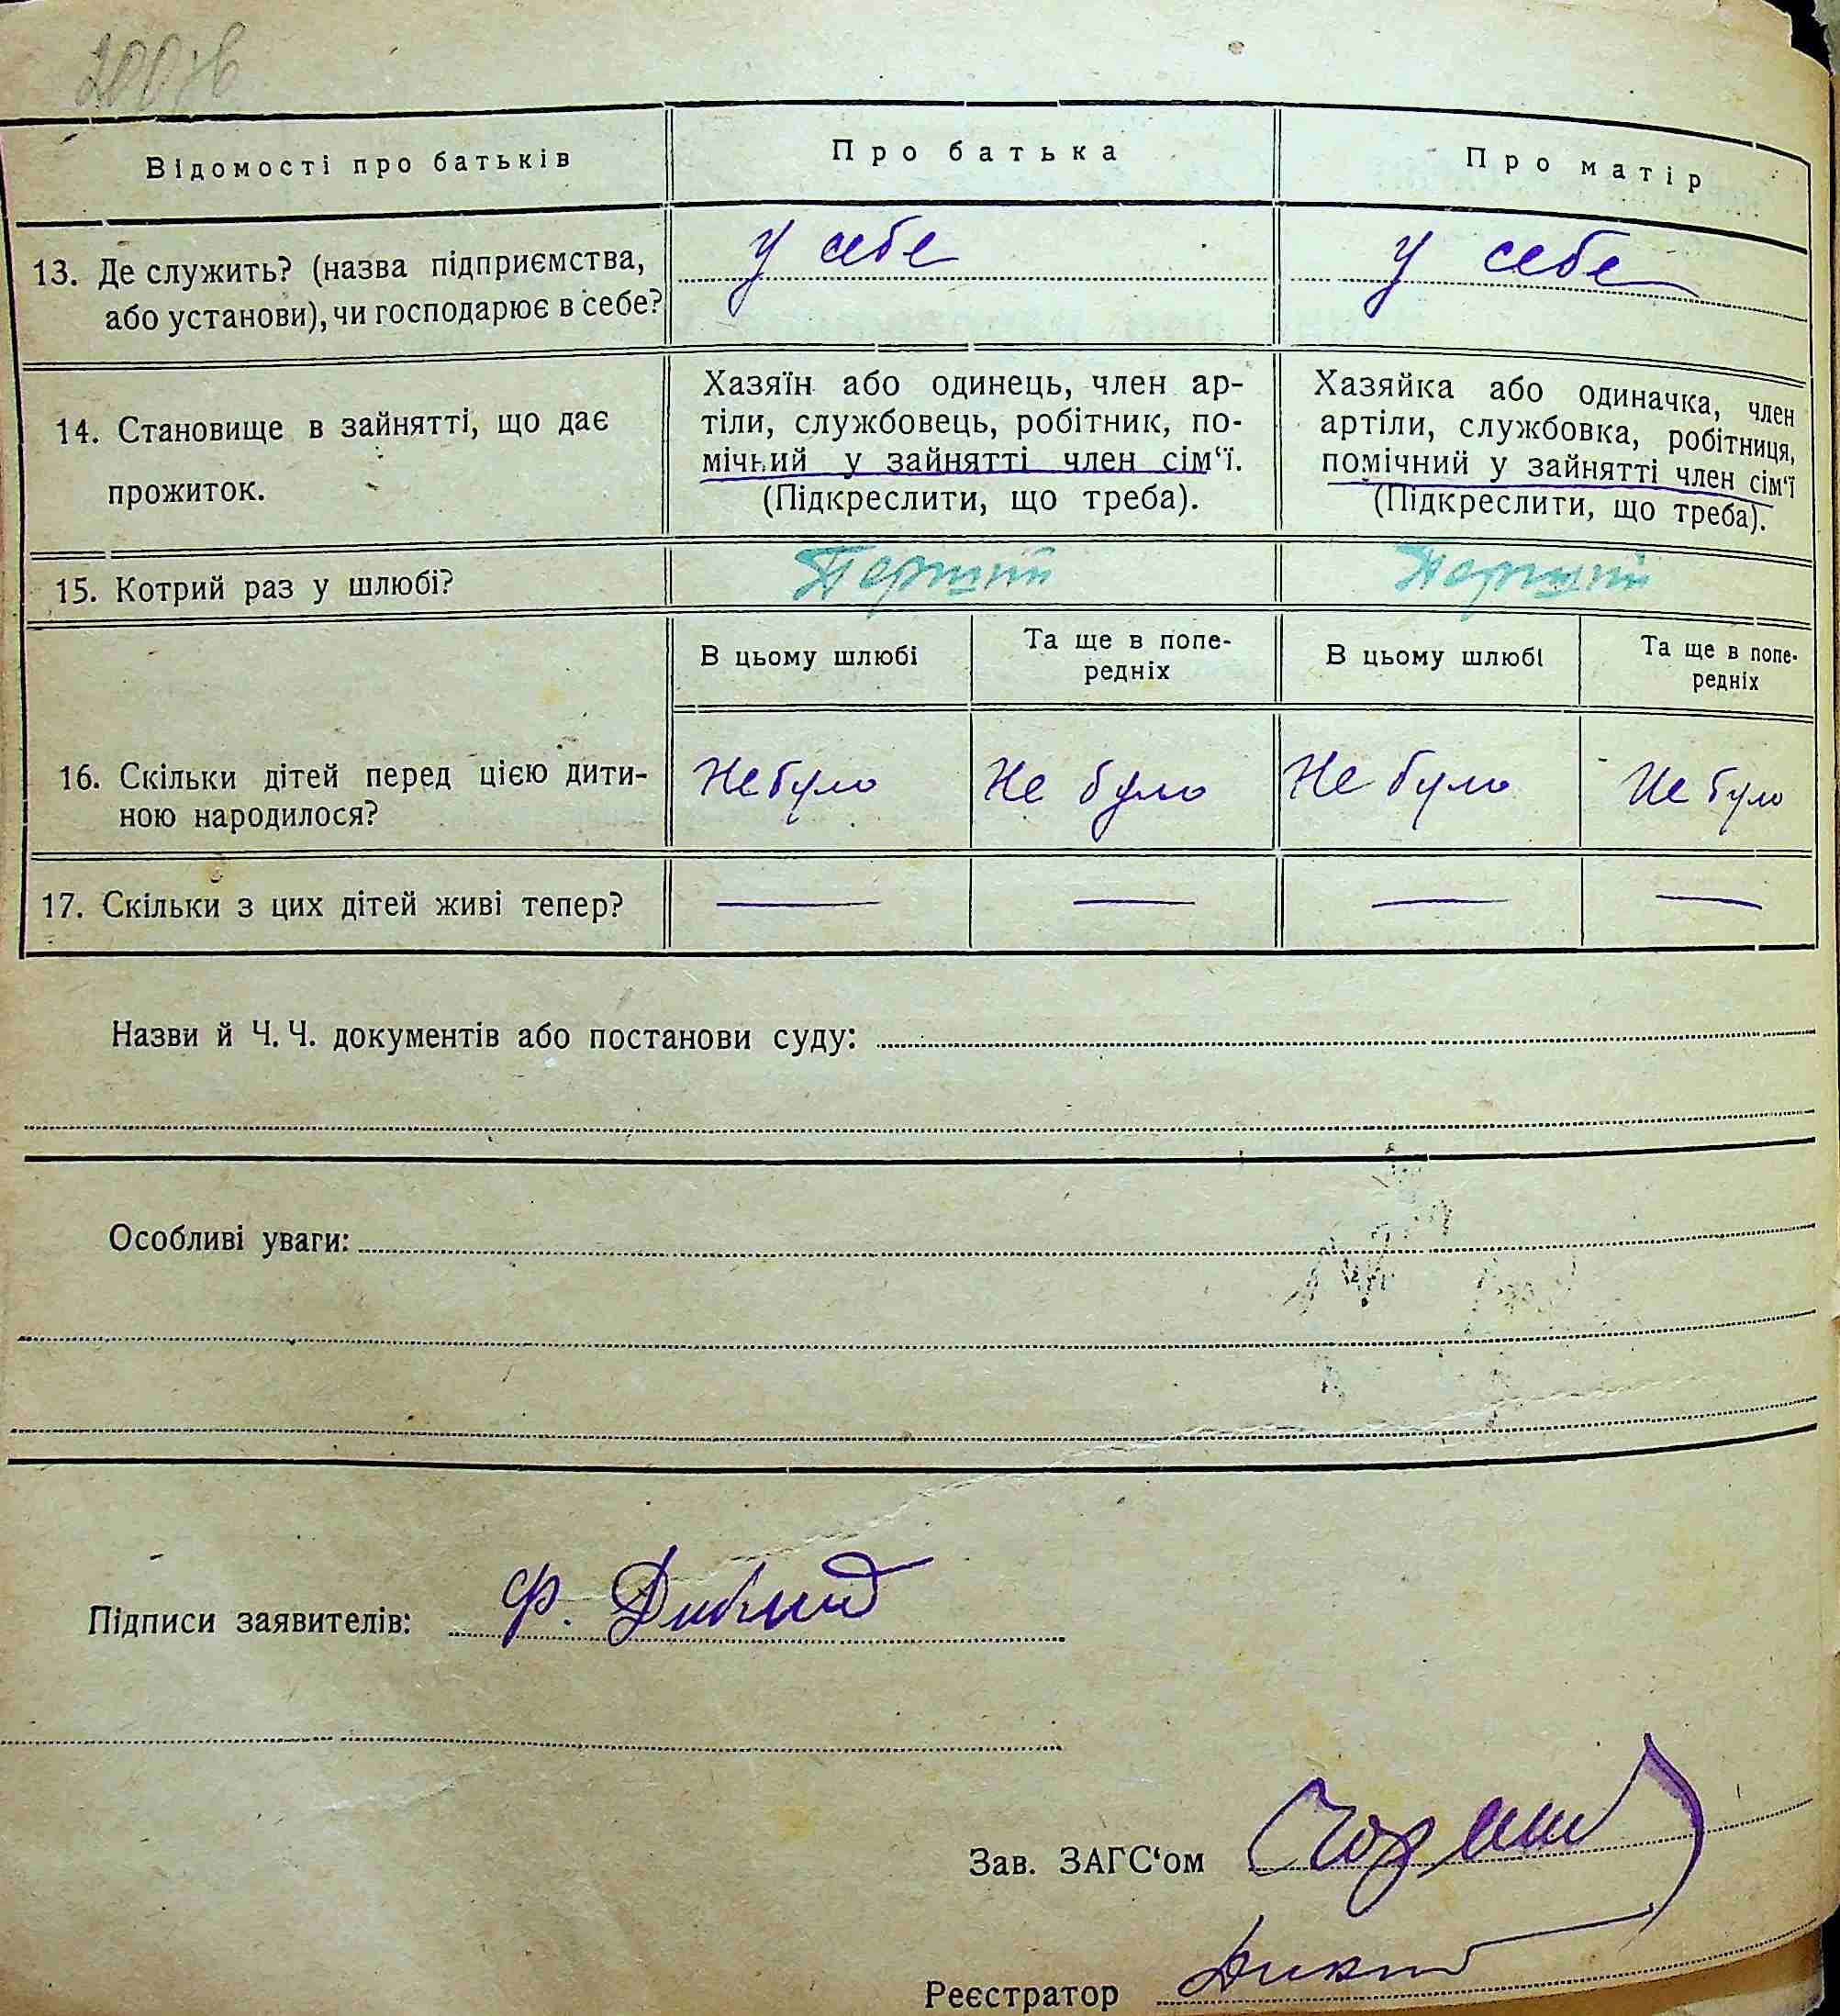 200зв
Відомості про батьків
Про батька
Про матір
13. Де служить? (назва підприємства,
або установи), чи господарює в себе?
у себе
у себе
14. Становище в зайнятті, що дає
прожиток.
Хазяїн або одинець, член ар-
тіли, службовець, робітник, по-
мічний у зайнятті член сім‘ї.
(Підкреслити, що треба).
Хазяйка або одиначка, член
артіли, службовка, робітниця,
помічний у зайнятті член сім‘ї
(Підкреслити, що треба).
15. Котрий раз у шлюбі?
Перший
Перший
В цьому шлюбі
Та ще в попе-
редніх
В цьому шлюбі
Та ще в попе-
редніх
16. Скільки дітей перед цією дити-
ною народилося?
Не було
Не було
Не було
Не було
17. Скільки з цих дітей живі тепер?
— — — —
Назви й Ч. Ч. документів або постанови суду:
Особливі уваги:
Підписи заявителів: Ф.
Зав. ЗАГС‘ом
Реєстратор